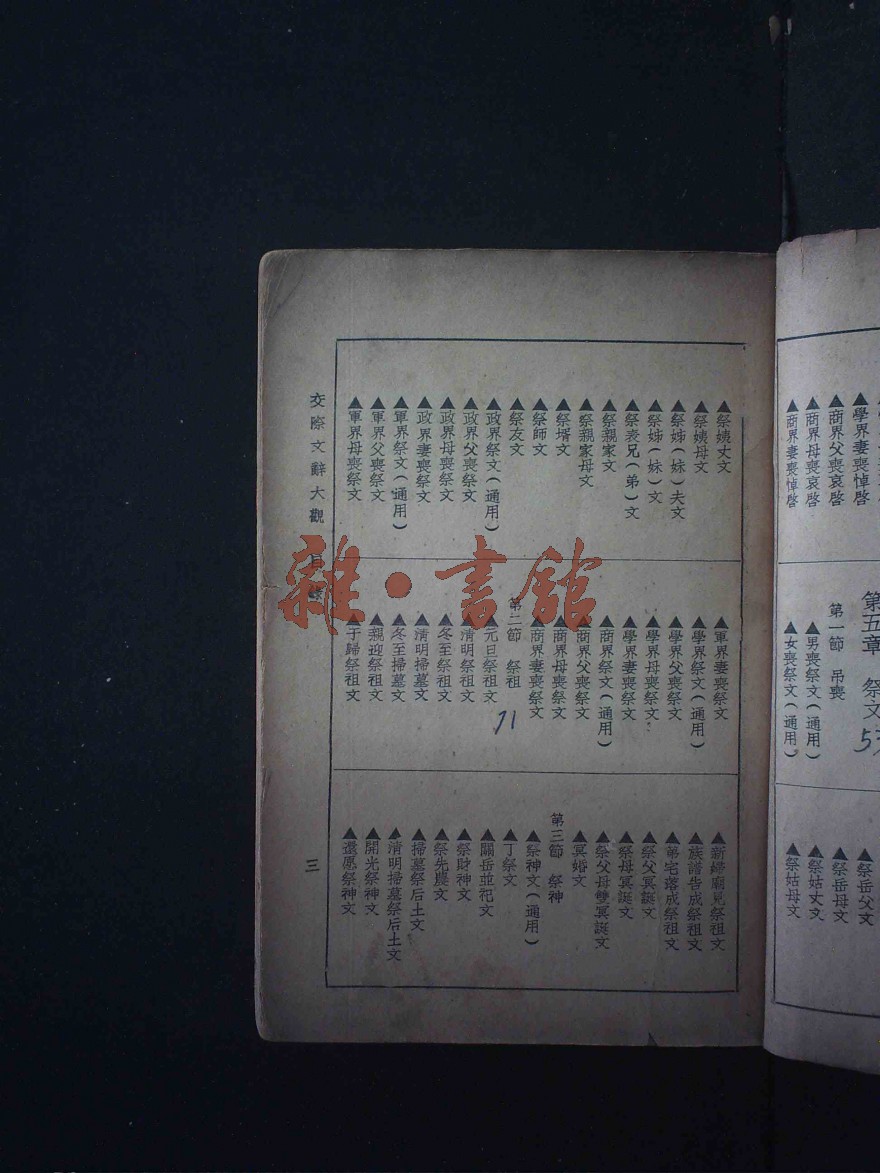 學界妻喪悼啓
商界父喪哀啓
商界母喪哀啓
商界妻喪悼啓
第五章　祭文
53
第一節　吊喪
▲男喪祭文(通用)
▲女喪祭文(通用)
▲祭岳父文
▲祭岳母文
▲祭姑丈文
▲祭姑母文
▲祭姨丈文
▲祭姨母文
▲祭姊(妹)夫文
▲祭姊(妹)文
▲祭表兄(弟)文
▲祭親家文
▲祭親家母文
▲祭壻文
▲祭師文
▲祭友文
▲政界祭文(通用)
▲政界父喪祭文
▲政界母喪祭文
▲政界妻喪祭文
▲軍界祭文(通用)
▲軍界父喪祭文
▲軍界母喪祭文
▲軍界妻喪祭文
▲學界祭文(通用)
▲學界父喪祭文
▲學界母喪祭文
▲學界妻喪祭文
▲商界祭文(通用)
▲商界父喪祭文
▲商界母喪祭文
▲商界妻喪祭文
第二節　祭祖
71
▲元旦祭祖文
▲清明祭祖文
▲冬至祭祖文
▲清明掃墓文
▲冬至掃墓文
▲親迎祭祖文
▲于歸祭祖文
▲新婦廟見祭祖文
▲族譜告成祭祖文
▲第宅落成祭祖文
▲祭父冥誕文
▲祭母冥誕文
▲祭父母雙冥誕文
▲冥婚文
第三節　祭神
▲祭神文(通用)
▲丁祭文
▲關岳並祀文
▲祭財神文
▲祭先農文
▲掃墓祭后土文
▲清明掃墓祭后土文
▲開光祭神文
▲還愿祭神文
交際文辭大觀　目錄
三
雜·書館